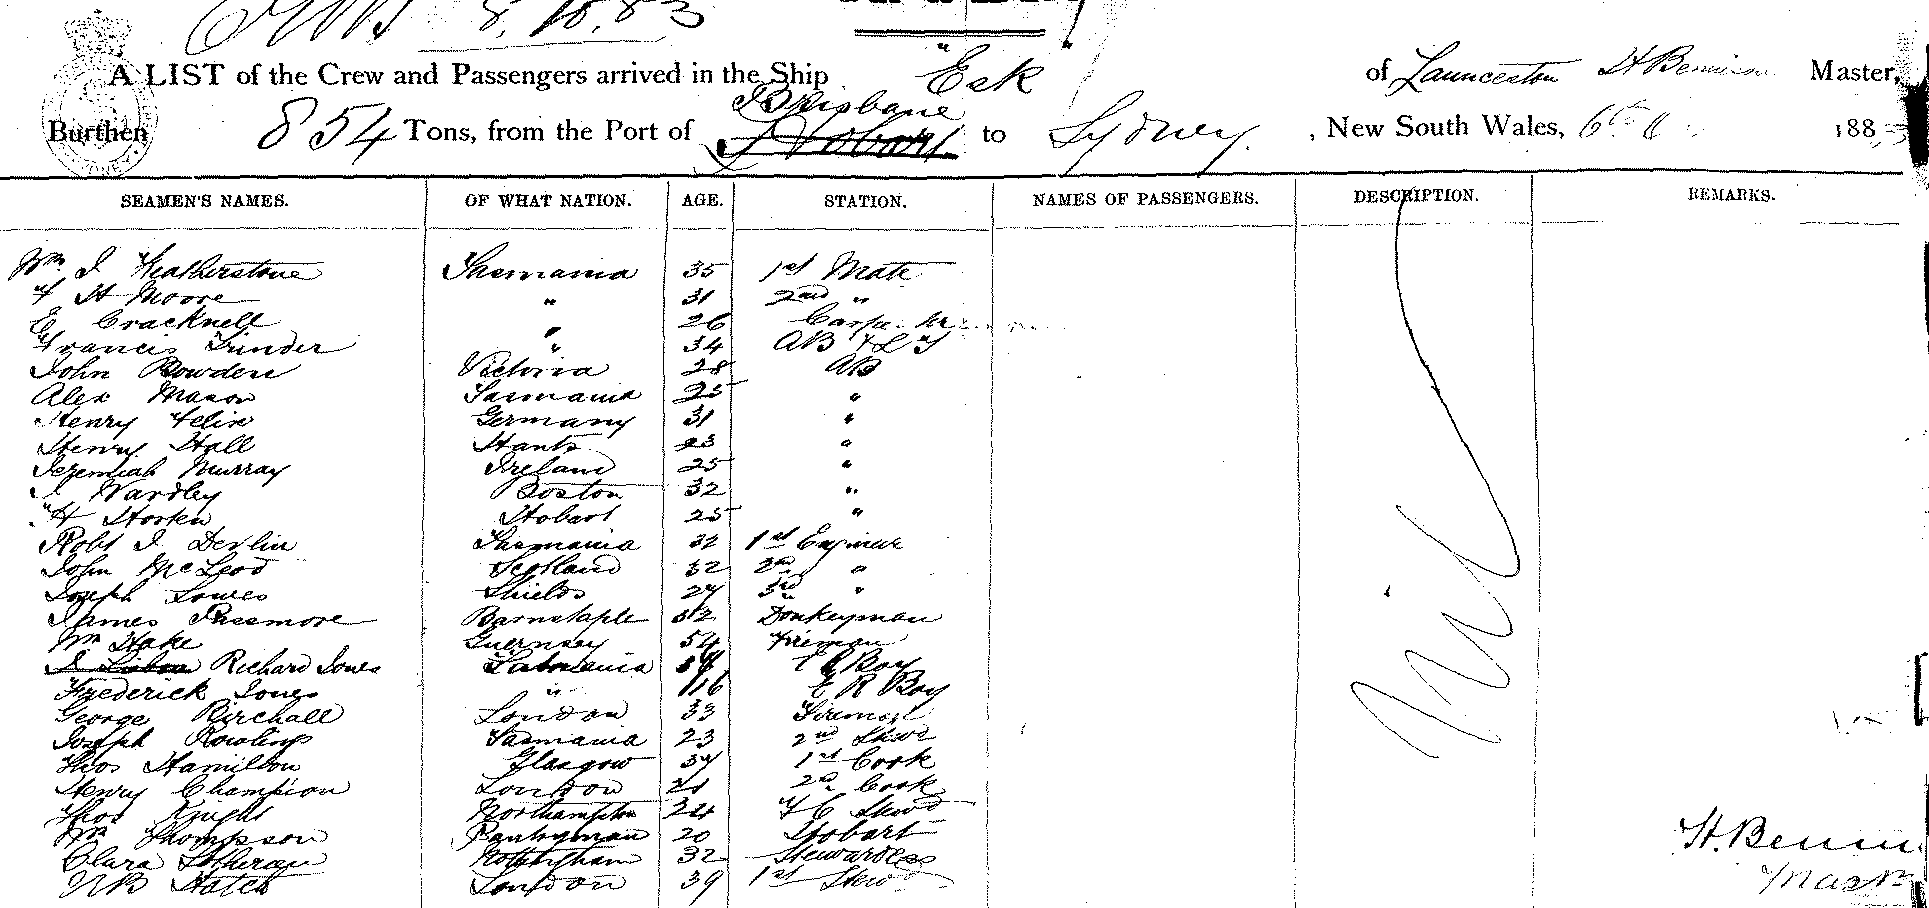 8.10.83
A LIST of the Crew and Passengers arrived in the Ship "Esk" of Launceston H Bennison Master,
Burthen 854 Tons, from the Port of Brisbane Hobart to Sydney , New South Wales, 6th 1883
SEAMEN'S NAMES. OF WHAT NATION. AGE. STATION. NAMES OF PASSENGERS. DESCRIPTION. REMARKS.
Wm J Heatherstone Tasmania 35 1st Mate
F H Moore " 31 2nd "
E Cracknell " 26
Francis Trinder " 34 AB & L T
John Bowden Victoria 28 AB
Alex Mason Tasmania 25 "
Henry Felix Germany 31 "
Henry Hall Hants 23 "
Jeremiah Murray Ireland 25 "
J Wardley Boston 32 "
H Hosken Hobart 25 "
Robt J Devlin Tasmania 32 1st Engineer
John McLeod Scotland 32 2nd "
Joseph Lowes Shields 27 3rd "
James Passmore Barnstaple 32 Donkeyman
Wm Hake Guernsey 54 Fireman
Richard Jones Tasmania Boy
Frederick Jones " 16 E R Boy
George Birchall London 33 Fireman
Joseph Rowlings Tasmania 23 2nd Stewd
Thos Hamilton Glasgow 37 1st Cook
Henry Champion London 21 2nd Cook
Thos Knight Northampton 24 F C Stewd
Wm Thompson Pantryman 20 Hobart
Clara Lotherage Nottingham 32 Stewardess
W B Hatch London 39 1st Stewd
Nil
H. Bennison
Master